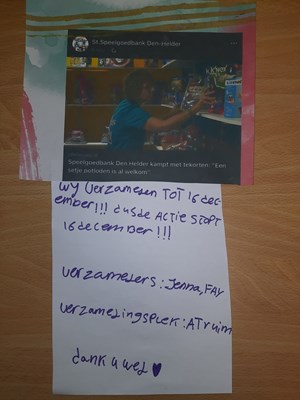 St Speelgoedbank Den Helder
Speelgoedbank Den Helder kampt met tekorten: "Een
setje potloden is al welkom"
wij verzamelen TOT 16 dec-
ember!!! dus de ACTIE STOPT
16 december!!!
verzamelers: Jenna, FAY
verzamelingsplek: ATruim
dank u wel ♥